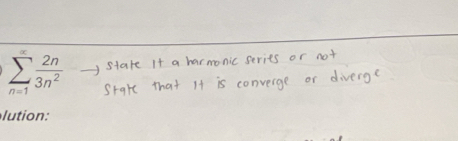 ∞
∑ 2n/3n² → State It a harmonic series or not
n=1 State that It is converge or diverge
lution: